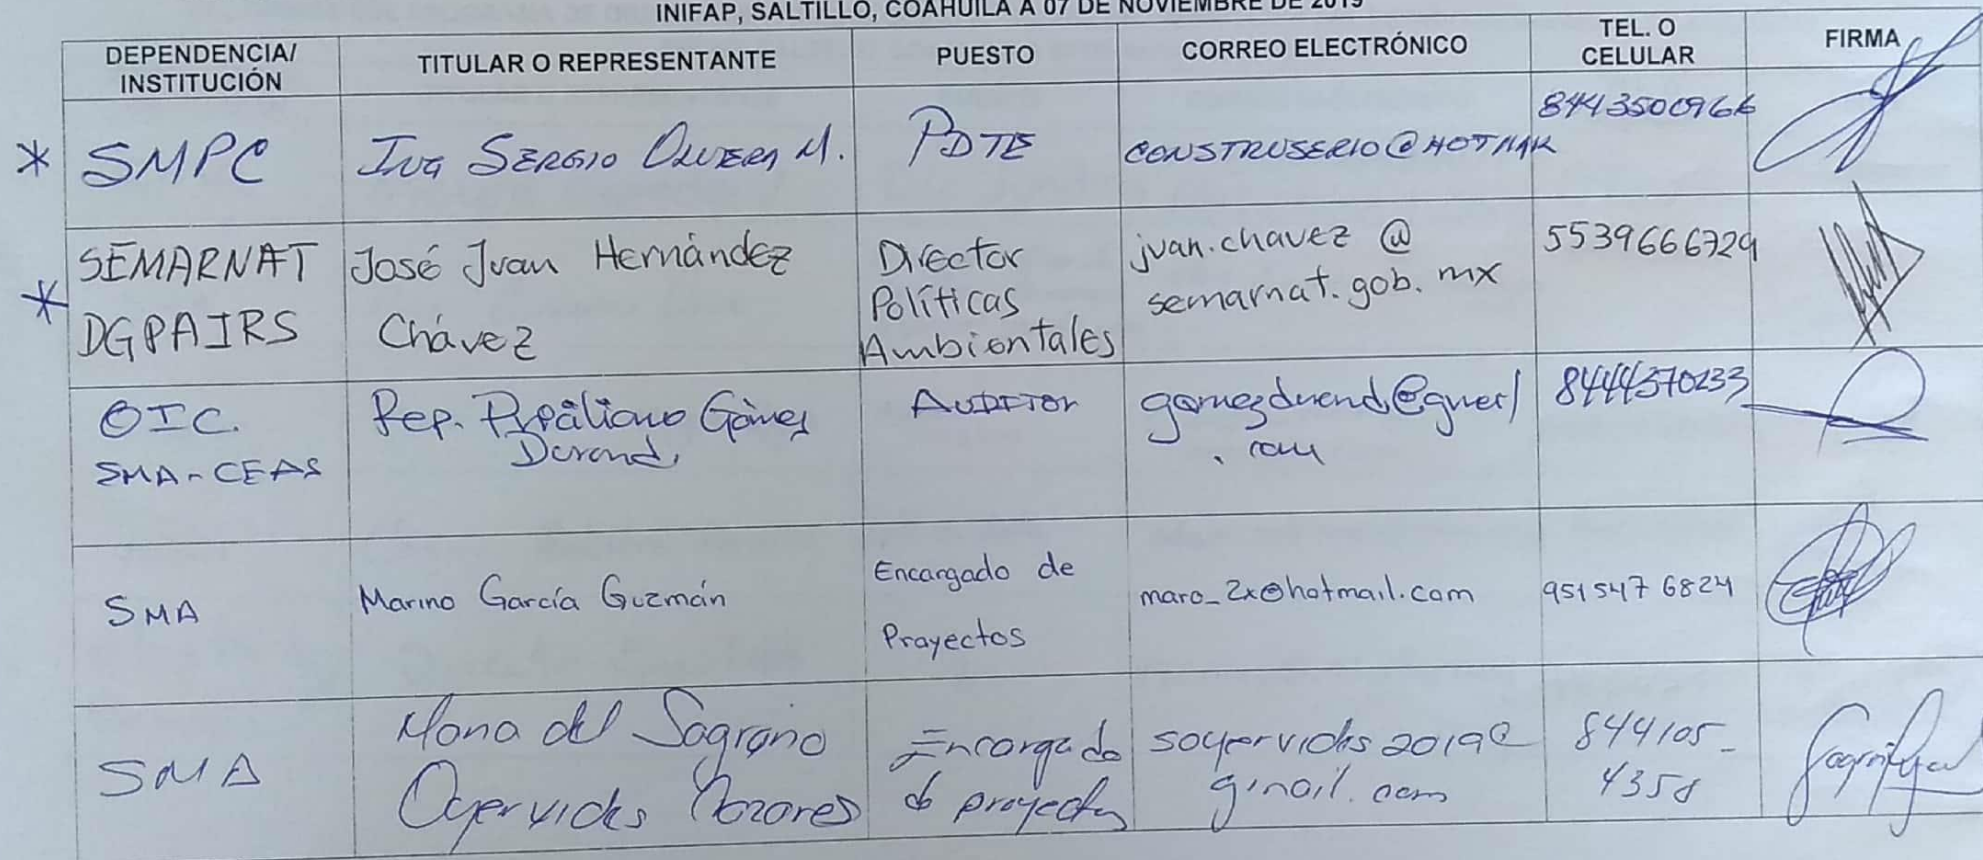 INIFAP, SALTILLO, COAHUILA A 07 DE NOVIEMBRE DE 2019
DEPENDENCIA/
INSTITUCIÓN
TITULAR O REPRESENTANTE
PUESTO
CORREO ELECTRÓNICO
TEL. O
CELULAR
FIRMA
* SMPC
Ing SERGIO OLVERA M.
PDTE
CONSTRUSERIO@HOTMAIL
8443500966
* SEMARNAT
DGPAIRS
José Juan Hernández
Chávez
Director
Políticas
Ambientales
juan.chavez @
semarnat.gob.mx
5539666729
OIC.
SMA-CEAS
Rep. Gómez
Durand.
AUDITOR
.com
8444570233
SMA
Marino García Guzmán
Encargado de
Proyectos
maro_2x@hotmail.com
951547 6824
SMA
Maria del Sagrario
Oyervides
Encargada
de proyectos
soyervides2019@
gmail.com
844105-
4358